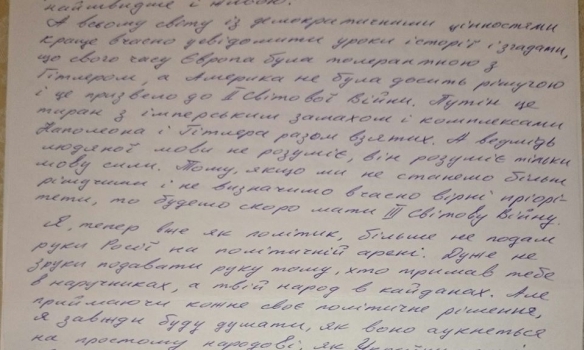 найшвидше і
А всьому світу із демократичними цінностями
краще вчасно усвідомити уроки історії і згадати,
що свого часу Європа була толерантною з
Гітлером, а Америка не була досить рішучою
і це призвело до ІІ Світової Війни. Путін це
тиран з імперським замахом і комплексами
Наполеона і Гітлера разом взятих. А ведмідь
людяної мови не розуміє, він розуміє тільки
мову сили. Тому, якщо ми не станемо більш
рішучими і не визначимо вчасно вірні пріорі-
тети, то будемо скоро мати ІІІ Світову Війну.
Я, тепер вже як політик, більше не подам
руки Росії на політичній арені. Дуже не
зруки подавати руку тому, хто тримав тебе
в наручниках, а твій народ в кайданах. Але
приймаючи кожне своє політичне рішення,
я завжди буду думати, як воно аукнеться
на простому народові, як